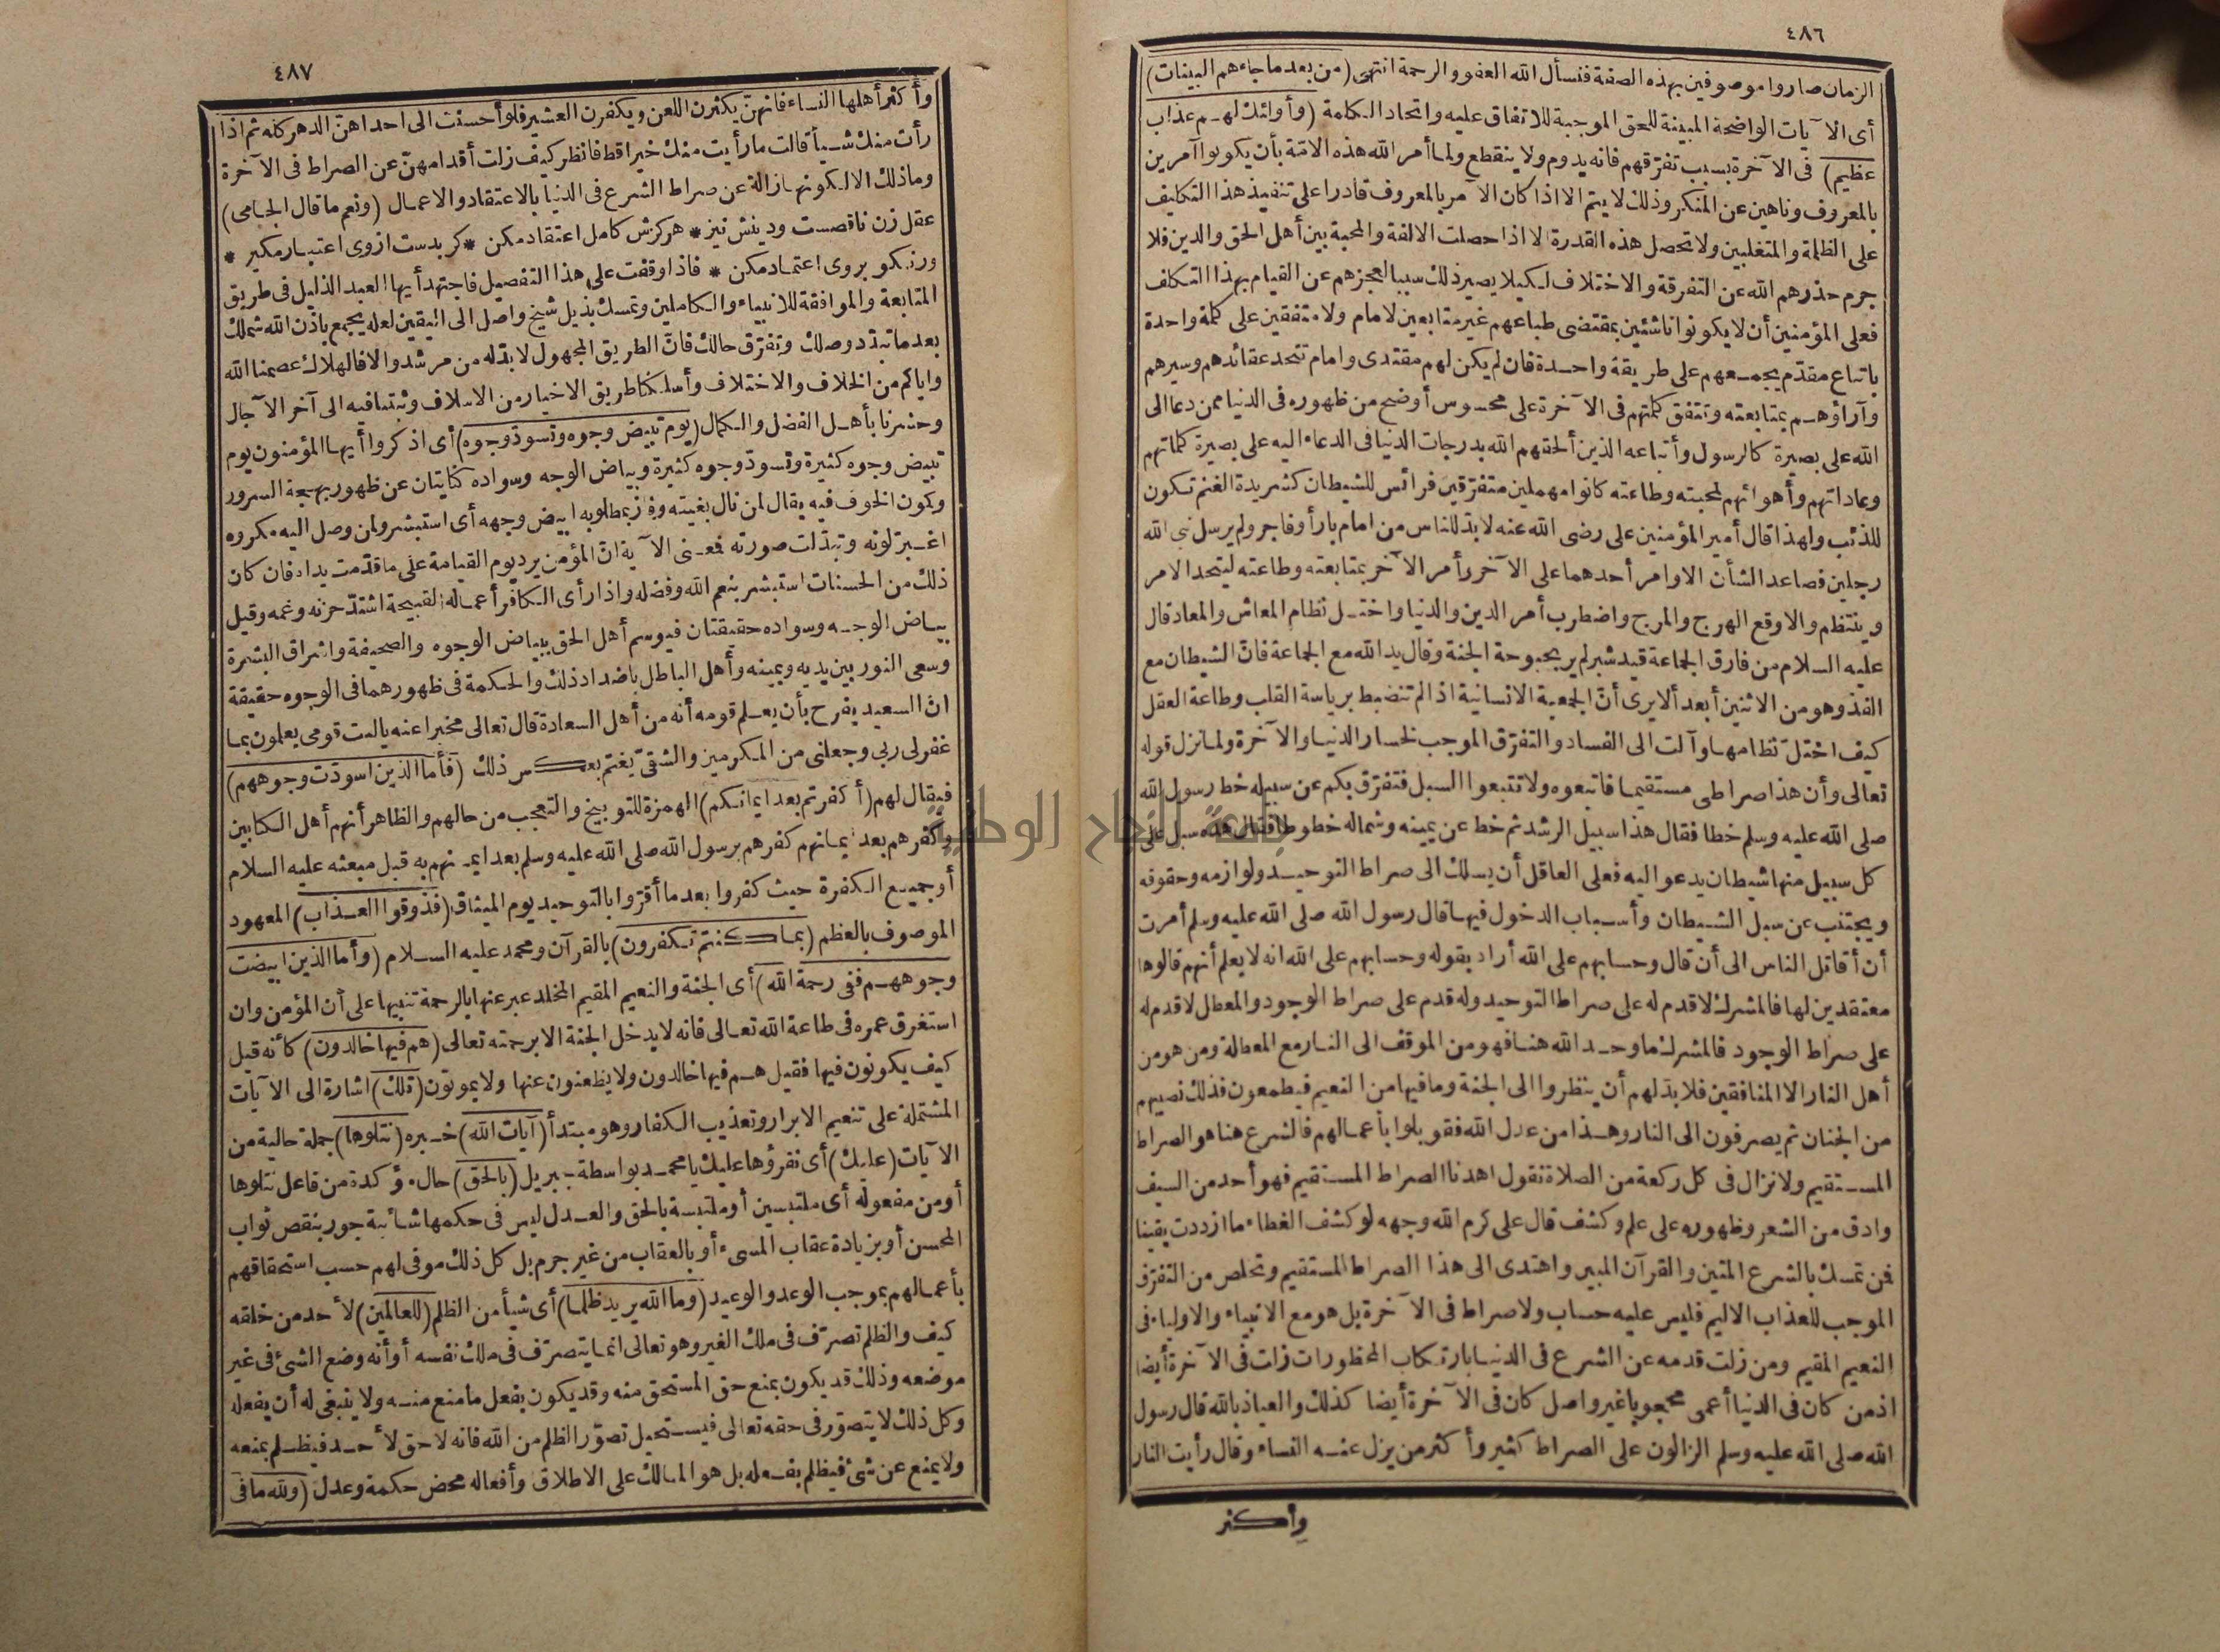 ٤٨٦
الزمان صاروا موصوفين بهذه الصفة فنسأل الله العفو والرحمة انتهى (من بعد ما جاءهم البينات)
أى الآيات الواضحة المبينة للحق الموجبة للاتفاق عليه واتحاد الكلمة (وأولئك لهم عذاب
عظيم) فى الآخرة بسبب تفرّقهم فانه يدوم ولا ينقطع ولما أمر الله هذه الامّة بأن يكونوا آمرين
بالمعروف وناهين عن المنكر وذلك لا يتم الا اذا كان الآمر بالمعروف قادرا على تنفيذ هذا التكليف
على الظلمة والمتغلبين ولا تحصل هذه القدرة الا اذا حصلت الالفة والمحبة بين أهل الحق والدين فلا
جرم حذرهم الله عن التفرقة والاختلاف لكيلا يصير ذلك سببا لعجزهم عن القيام بهذا التكلف
فعلى المؤمنين أن لا يكونوا ناشئين بمقتضى طباعهم غير متابعين لامام ولا متفقين على كلمة واحدة
باتباع مقدّم يجمعهم على طريقة واحدة فان لم يكن لهم مقتدى وامام تتحد عقائدهم وسيرهم
وآراؤهم بمتابعته وتتفق كلمتهم فى الآخرة على محسوس أوضح من ظهوره فى الدنيا ممن دعا الى
الله على بصيرة كالرسول وأتباعه الذين ألحقهم الله بدرجات الدنيا فى الدعاء اليه على بصيرة كلماتهم
وعاداتهم وأهوائهم لمحبته وطاعته كانوا مهملين متفرّقين فرائس للشيطان كشريدة الغنم تكون
للذئب ولهذا قال أمير المؤمنين على رضى الله عنه لا بدّ للناس من امام بارأ وفاجر ولم يرسل نبى الله
رجلين فصاعدا لشأن الا وامر أحدهما على الآخر وأمر الآخر بمتابعته وطاعته ليتحد الامر
وينتظم والا وقع الهرج والمرج واضطرب أمر الدين والدنيا واختل نظام المعاش والمعاد قال
عليه السلام من فارق الجماعة قيد شبر لم ير بحبوحة الجنة وقال يد الله مع الجماعة فانّ الشيطان مع
الفذ وهو من الاثنين أبعد ألا يرى أنّ الجمعية الانسانية اذا لم تنضبط برياسة القلب وطاعة العقل
كيف اختلّ نظامها وآلت الى الفساد والتفرّق الموجب لخسار الدنيا والآخرة ولما نزل قوله
تعالى وأن هذا صراطى مستقيما فاتبعوه ولا تتبعوا السبل فتفرّق بكم عن سبيله خط رسول الله
صلى الله عليه وسلم خطا فقال هذا سبيل الرشد ثم خط عن يمينه وشماله خطوطا فقال هذه سبل على
كل سبيل منها شيطان يدعو اليه فعلى العاقل أن يسلك الى صراط التوحيد ولوازمه وحقوقه
ويجتنب عن سبل الشيطان وأسباب الدخول فيها قال رسول الله صلى الله عليه وسلم أمرت
أن أقاتل الناس الى أن قال وحسابهم على الله أراد بقوله وحسابهم على الله انه لا يعلم أنهم قالوها
معتقدين لها فالمشرك لا قدم له على صراط التوحيد وله قدم على صراط الوجود والمعطل لا قدم له
على صراط الوجود فالمشرك ما وحد الله هنا فهو من الموقف الى النار مع المعطلة ومن هو من
أهل النار الا المنافقين فلا بدّ لهم أن ينظروا الى الجنة وما فيها من النعيم فيطمعون فذلك نصيبهم
من الجنان ثم يصرفون الى النار وهذا من عدل الله فقوبلوا بأعمالهم فالشرع هنا هو الصراط
المستقيم ولا نزال فى كل ركعة من الصلاة نقول اهدنا الصراط المستقيم فهو أحد من السيف
وادق من الشعر وظهوره على علم وكشف قال على كرم الله وجهه لو كشف الغطاء ما ازددت يقينا
فمن تمسك بالشرع المتين والقرآن المبين واهتدى الى هذا الصراط المستقيم وتخلص من التفرّق
الموجب للعذاب الاليم فليس عليه حساب ولا صراط فى الآخرة بل هو مع الانبياء والاولياء فى
النعيم المقيم ومن زلت قدمه عن الشرع فى الدنيا بارتكاب المحظورات زلت فى الآخرة أيضا
اذ من كان فى الدنيا أعمى محجوبا غير واصل كان فى الآخرة أيضا كذلك والعياذ بالله قال رسول
الله صلى الله عليه وسلم الزالون على الصراط كثير وأكثر من يزل عنه النساء وقال رأيت النار
وأكثر
٤٨٧
وأكثر أهلها النساء فانهنّ يكثرن اللعن ويكفرن العشير فلو أحسنت الى احداهنّ الدهر كله ثم اذا
رأت منك شيأ قالت ما رأيت منك خيرا قط فانظر كيف زلت أقدامهنّ عن الصراط فى الآخرة
وما ذلك الا لكونها زالة عن صراط الشرع فى الدنيا بالاعتقاد والاعمال (ونعم ما قال الجامى)
عقل زن ناقصست ودينش نيز * هر كزش كامل اعتقاد مكن * كر بدست از وى اعتبار مكير *
ور نكو بر وى اعتماد مكن * فاذا وقفت على هذا التفصيل فاجتهد أيها العبد الذليل فى طريق
المتابعة والموافقة للانبياء والكاملين وتمسك بذيل شيخ واصل الى اليقين لعله يجمع باذن الله شملك
بعد ما تبدّد وصلك وتفرّق حالك فانّ الطريق المجهول لا بدّ له من مرشد والا فالهلاك عصمنا الله
واياكم من الخلاف والاختلاف وأسلكنا طريق الاخيار من الاسلاف وثبتنا فيه الى آخر الآجال
وحشرنا بأهل الفضل والكمال (يوم تبيض وجوه وتسودّ وجوه) أى اذكروا أيها المؤمنون يوم
تبيض وجوه كثيرة وتسودّ وجوه كثيرة وبياض الوجه وسواده كنايتان عن ظهور بهجة السرور
وكمون الخوف فيه يقال لمن نال بغيته وفاز بمطلوبه ابيض وجهه أى استبشر ولمن وصل اليه مكروه
اغبر لونه وتبدّلت صورته فمعنى الآية انّ المؤمن يرد يوم القيامة على ما قدّمت يداه فان كان
ذلك من الحسنات استبشر بنعم الله وفضله واذا رأى الكافر أعماله القبيحة اشتدّ حزنه وغمه وقيل
بياض الوجه وسواده حقيقتان فيوسم أهل الحق ببياض الوجوه والصحيفة واشراق البشرة
وسعى النور بين يديه ويمينه وأهل الباطل بأضداد ذلك والحكمة فى ظهورهما فى الوجوه حقيقة
انّ السعيد يفرح بأن يعلم قومه أنه من أهل السعادة قال تعالى مخبرا عنه يا ليت قومى يعلمون بما
غفر لى ربى وجعلنى من المكرمين والشقىّ يغتم بعكس ذلك (فأما الذين اسودّت وجوههم)
فيقال لهم (أكفرتم بعد ايمانكم) الهمزة للتوبيخ والتعجب من حالهم والظاهر أنهم أهل الكتابين
وكفرهم بعد ايمانهم كفرهم برسول الله صلى الله عليه وسلم بعد ايمانهم به قبل مبعثه عليه السلام
أو جميع الكفرة حيث كفروا بعد ما أقرّوا بالتوحيد يوم الميثاق (فذوقوا العذاب) المعهود
الموصوف بالعظم (بما كنتم تكفرون) بالقرآن ومحمد عليه السلام (وأما الذين ابيضت
وجوههم ففى رحمة الله) أى الجنة والنعيم المقيم المخلد عبر عنها بالرحمة تنبيها على أن المؤمن وان
استغرق عمره فى طاعة الله تعالى فانه لا يدخل الجنة الا برحمته تعالى (هم فيها خالدون) كأنه قيل
كيف يكونون فيها فقيل هم فيها خالدون ولا يظعنون عنها ولا يموتون (تلك) اشارة الى الآيات
المشتملة على تنعيم الابرار وتعذيب الكفار وهو مبتدأ (آيات الله) خبره (نتلوها) جملة حالية من
الآيات (عليك) أى نقرؤها عليك يا محمد بواسطة جبريل (بالحق) حال مؤكدة من فاعل نتلوها
أو من مفعوله أى ملتبسين أو ملتبسة بالحق والعدل ليس فى حكمها شائبة جور بنقص ثواب
المحسن أو بزيادة عقاب المسىء أو بالعقاب من غير جرم بل كل ذلك موفى لهم حسب استحقاقهم
بأعمالهم بموجب الوعد والوعيد (وما الله يريد ظلما) أى شيأ من الظلم (للعالمين) لأحد من خلقه
كيف والظلم تصرّف فى ملك الغير وهو تعالى انما يتصرّف فى ملك نفسه أو أنه وضع الشئ فى غير
موضعه وذلك قد يكون بمنع حق المستحق منه وقد يكون بفعل ما منع منه ولا ينبغى له أن يفعله
وكل ذلك لا يتصوّر فى حقه تعالى فيستحيل تصوّر الظلم من الله فانه لا حق لأحد فيظلم بمنعه
ولا يمنع عن شئ فيظلم بفعله بل هو المالك على الاطلاق وأفعاله محض حكمة وعدل (ولله ما فى
جامعة النجاح الوطنية